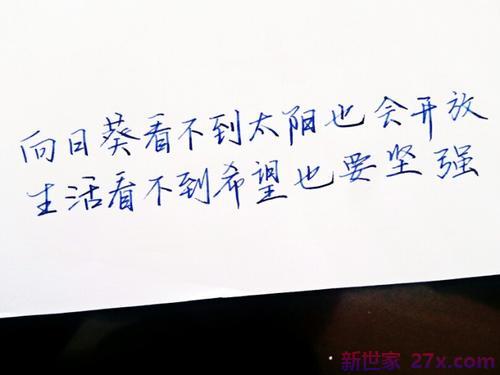 向日葵看不到太阳也会开放
生活看不到希望也要坚强
新世家 27x.com